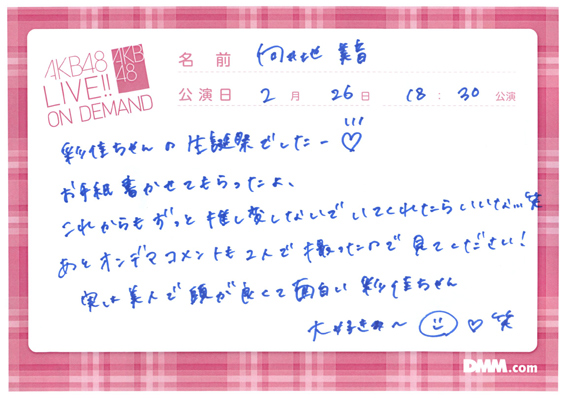 AKB48
LIVE!!
ON DEMAND
AKB
48
名前 向井地 美音
公演日 2月 26日 18:30 公演
彩佳ちゃんの生誕祭でしたー♡
お手紙書かせてもらったよ、
これからもずっと推し変しないでいてくれたらいいな…笑
あとオンデマコメントも2人で撮ったので見てください!
実は美人で頭が良くて面白い彩佳ちゃん
大好きだよ〜 ♡ 笑
DMM.com